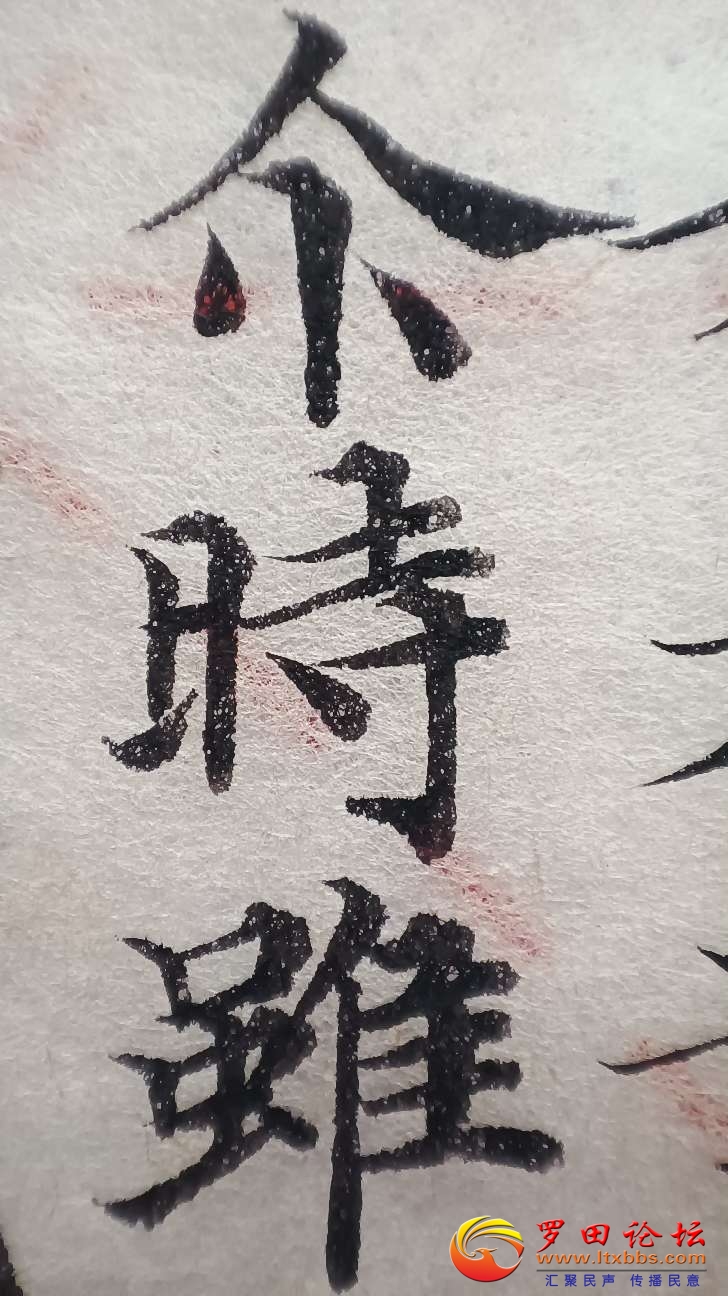 尒
時
雖
罗田论坛
www.ltxbbs.com
汇聚民声 传播民意